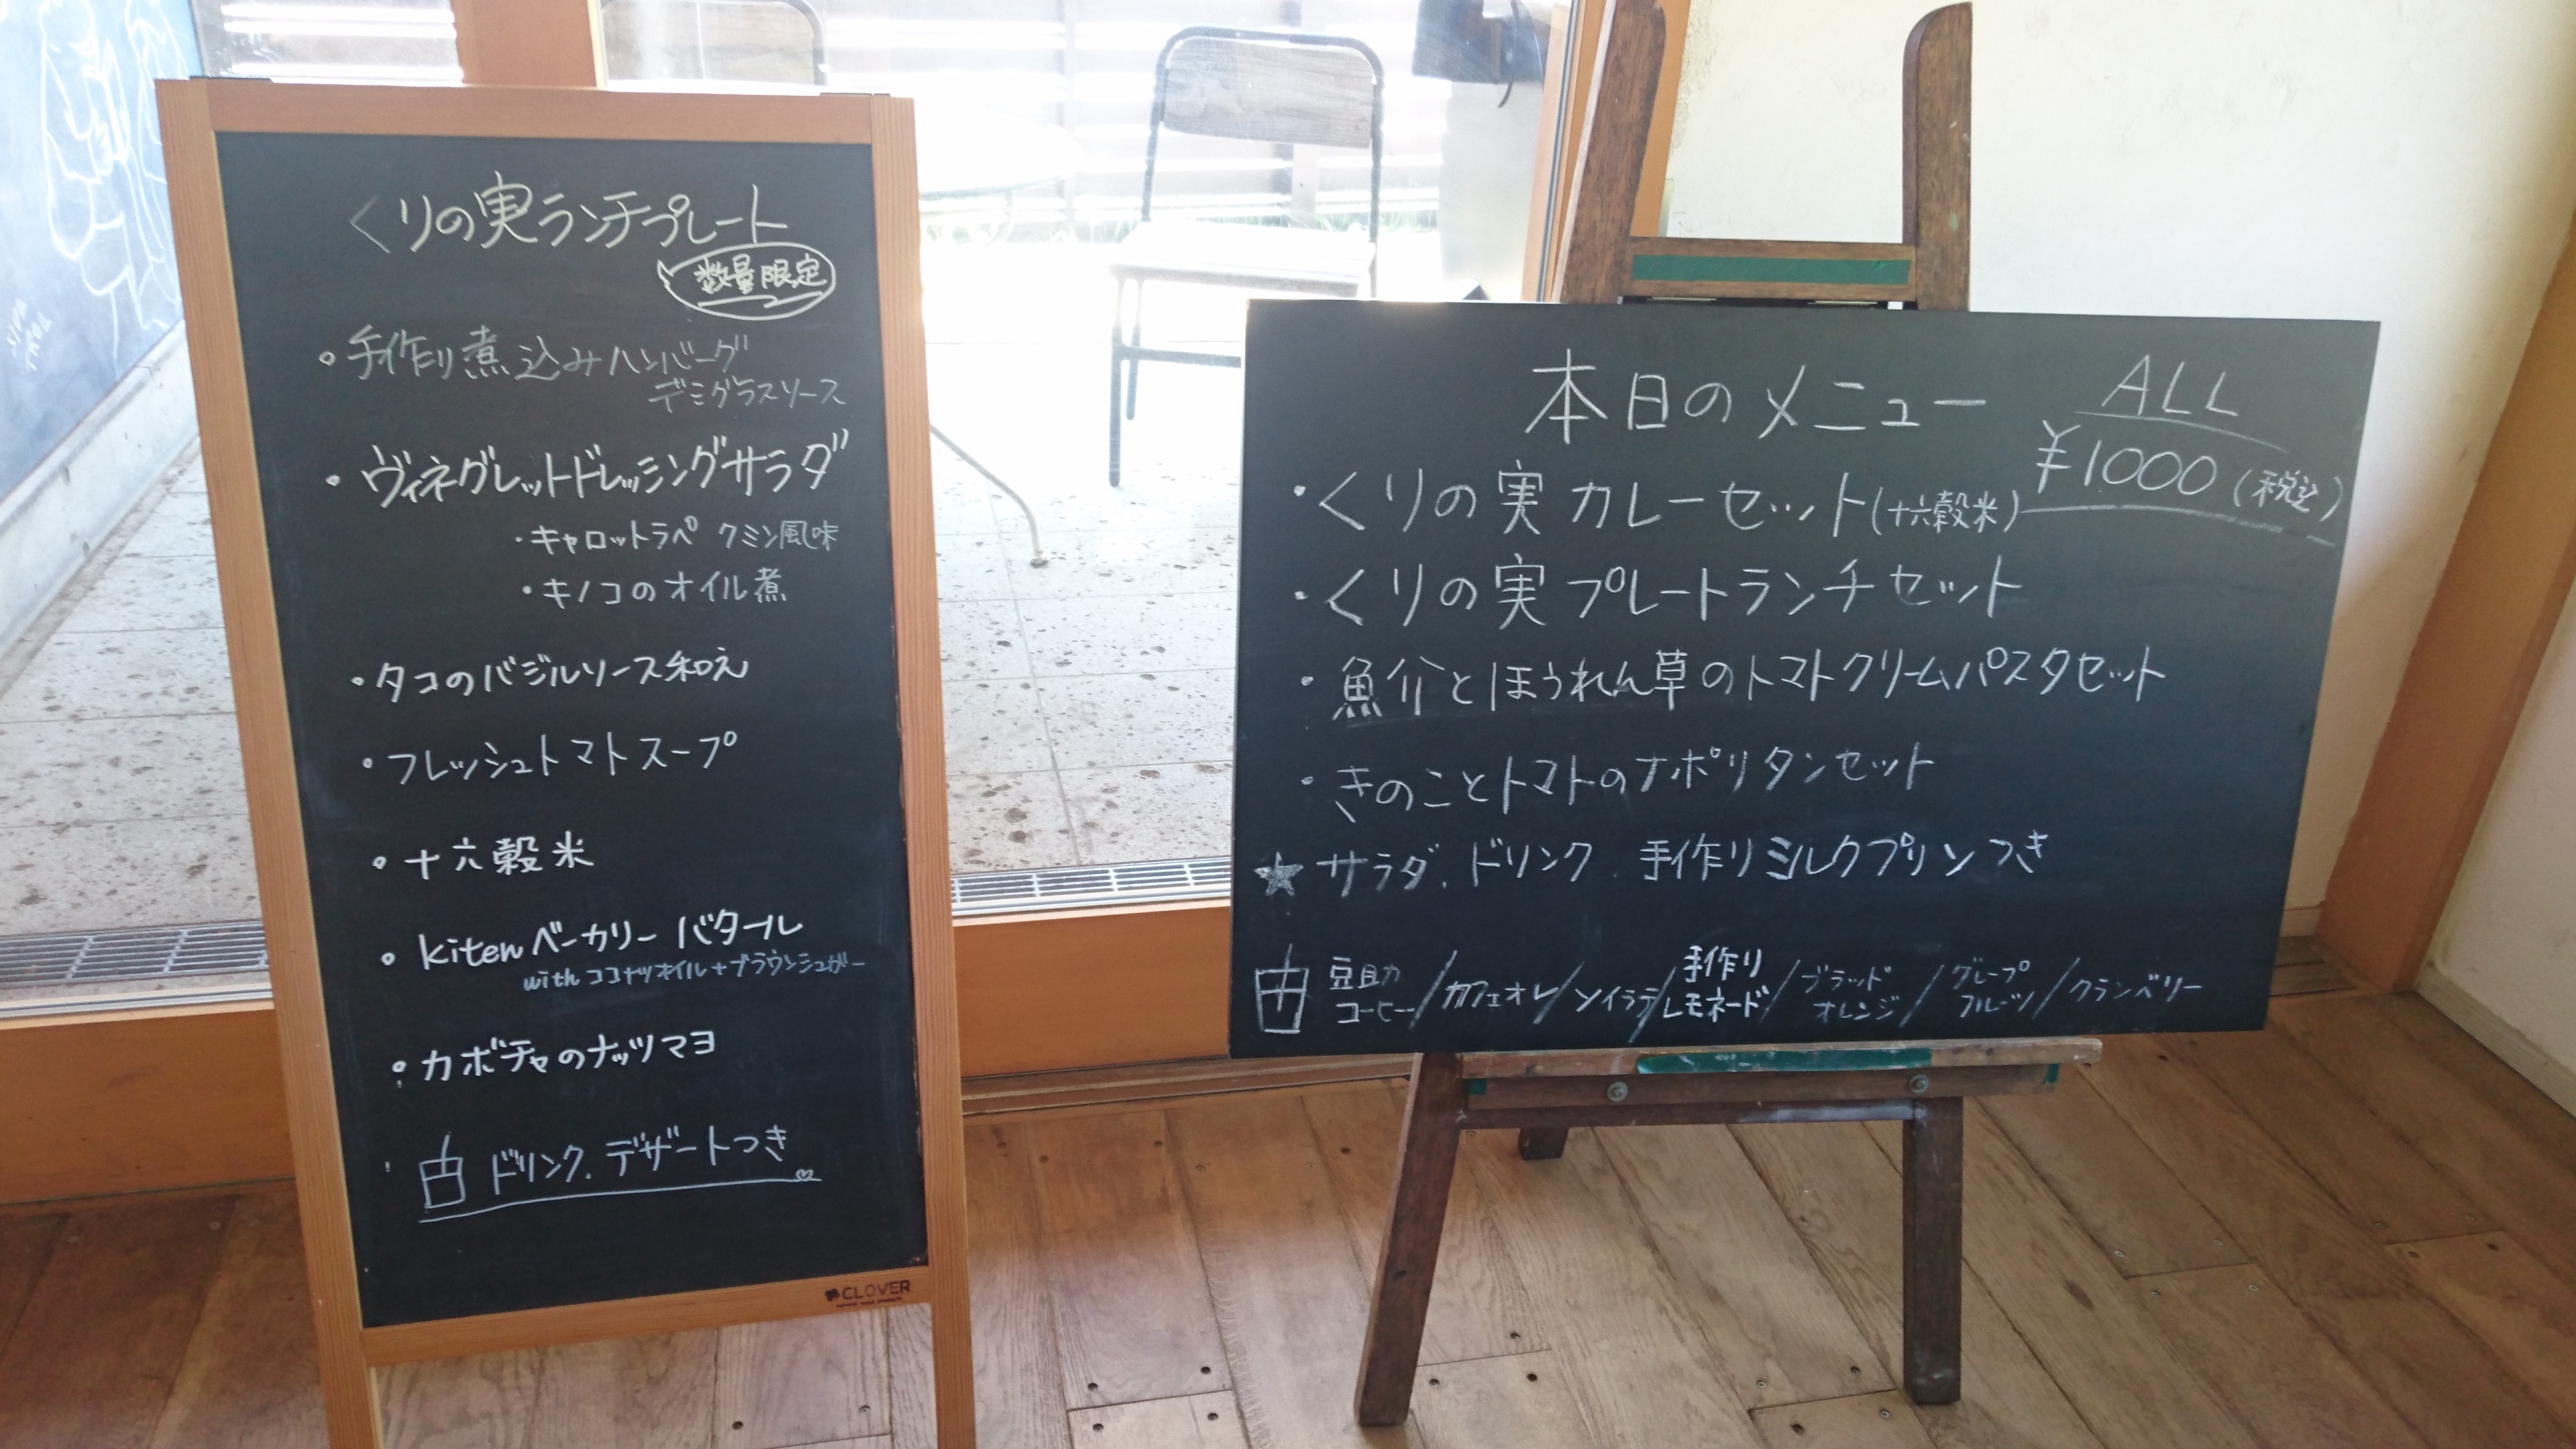 くりの実ランチプレート
数量限定
・手作り煮込みハンバーグ
デミグラスソース
・ヴィネグレットドレッシングサラダ
・キャロットラペ クミン風味
・キノコのオイル煮
・タコのバジルソース和え
・フレッシュトマトスープ
・十六穀米
・kitenベーカリー バタール
with ココナッツオイル+ブラウンシュガー
・カボチャのナッツマヨ
ドリンク、デザートつき
CLOVER
本日のメニュー
ALL
¥1000(税込)
・くりの実カレーセット(十六穀米)
・くりの実プレートランチセット
・魚介とほうれん草のトマトクリームパスタセット
・きのことトマトのナポリタンセット
★サラダ、ドリンク、手作りミルクプリンつき
豆助コーヒー/カフェオレ/ソイラテ/手作りレモネード/ブラッドオレンジ/グレープフルーツ/クランベリー